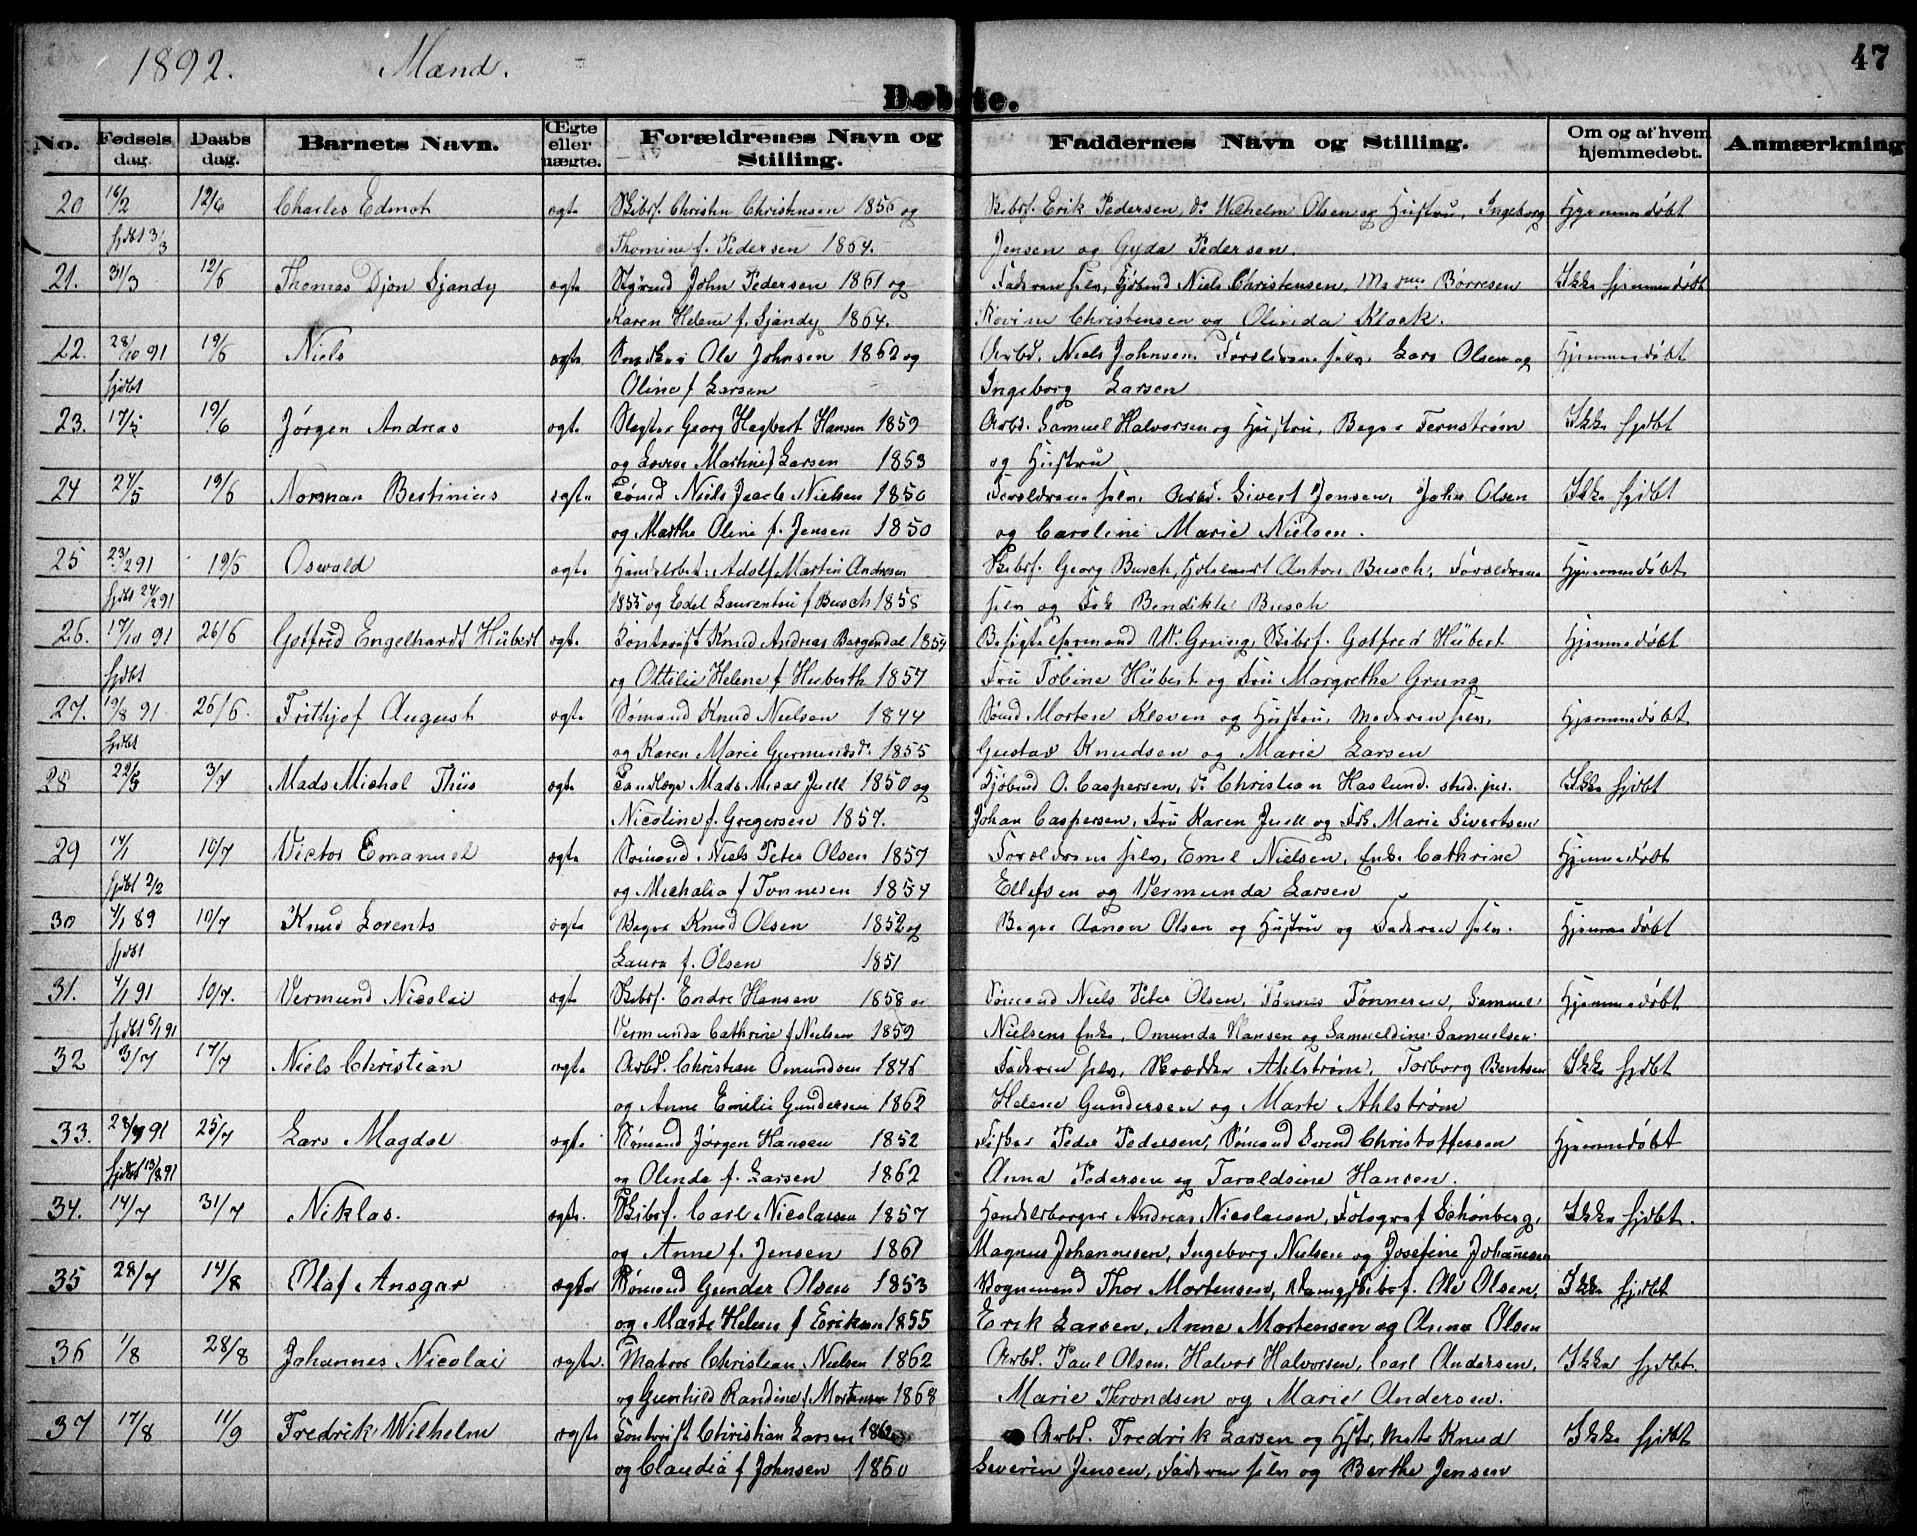 1892. Mænd.
47
Døbte.
No. Fødsels dag. Daabs dag. Barnets Navn. Ægte eller uægte. Forældrenes Navn og Stilling. Faddernes Navn og Stilling. Om og af hvem hjemmedøbt. Anmærkning
20 16/2 12/6 Charles Edmot ægte Skibsf. Christen Christensen 1856 og Skibsf. Erik Pedersen, do Wilhelm Olsen og Hustru, Ingeborg Hjemmedøbt
hjdbt 3/3 Thomine f. Pedersen 1864. Jensen og Gyda Pedersen.
21. 31/3 12/6 Thomas Djon Sjandy ægte John Pedersen 1861 og Faderen selv, Niels Christensen, Børresen Ikke hjemmedøbt
Karen Helene f. Sjandy 1864. Christensen og Olinda Klock.
22. 28/10 91 19/6 Niels ægte Snedker Ole Johnsen 1862 og Arbd. Niels Johnsen, Forældrene selv, Lars Olsen og Hjemmedøbt
hjdbt Oline f Larsen Ingeborg Larsen
23. 17/5 19/6 Jørgen Andreas ægte Slagter Georg Hagbart Hansen 1859 Arbd. Samuel Halvorsen og Hustru, Bager Fernstrøm Ikke hjdbt
og Lovise Martine f Larsen 1853 og Hustru
24 24/5 19/6 Norman Bestinius ægte Tømd Niels Jacob Nielsen 1850 Forældrene selv, Arbd. Sivert Jensen, John Olsen Ikke hjdbt
og Marthe Oline f. Jensen 1850 og Caroline Marie Nielsen.
25 23/2 91 19/6 Oswald ægte Adolf Martin Andresen Skibsf. Georg Busch, Anton Busch, Forældrene Hjemmedøbt
hjdbt 24/2 91 1855 og Edel Laurentse f Busch 1858 selv og Frk Bendikte Busch
26. 17/10 91 26/6 Gotfred Engelhardt Hübert ægte Knud Andreas Bergendal 1854 W. Grung, Skibsf. Gotfred Hübert Hjemmedøbt
hjdbt og Ottilie Helene f Hüberth 1857 Fru Tobine Hübert og Fru Margrethe Grung
27. 19/8 91 26/6. Frithjof August ægte Sømand Knud Nielsen 1844 Sømd Morten Kleven og Hustru, Moderen selv, Hjemmedøbt
hjdbt og Karen Marie Gjermundsd. 1855 Gustav Knudsen og Marie Larsen
28 22/5 3/7 Mads Michal Thiis ægte Tandlæge Mads Juell 1850 og Kjøbmd O. Caspersen, do Christian Haslund, stud. jur. Ikke hjdbt
Nicoline f. Gregersen 1857. Johan Caspersen, Fru Karen Juell og Frk. Marie Sivertsen
29 14/1 10/7 Victor Emanuel ægte Sømand Niels Peter Olsen 1857 Forældrene selv, Emil Nielsen, Enke Cathrine Hjemmedøbt
hjdbt 2/2 og Michalia f Tønnesen 1854 Ellefsen og Vermunda Larsen
30 4/1 89 10/7 Knud Lorents ægte Bager Knud Olsen 1852 og Bager Olsen og Hustru og Faderen selv. Hjemmedøbt
hjdbt Laura f. Olsen 1851
31. 4/1 91 10/7. Vermund Nicolai ægte Skibsf. Endre Hansen 1858 og Sømand Niels Peter Olsen, Tønnes Tønnesen, Samuel Hjemmedøbt
hjdbt 6/1 91 Vermunda Cathrine f Nielsen 1859 Nielsens Enke, Omunda Hansen og Samueldine Samuelsen.
32 3/7 17/7 Niels Christian ægte Arbd. Christian Omundsen 1846 Faderen selv, Skrædder Ahlstrøm, Torborg Bentsen Ikke hjdbt
og Anne Emilie Gundersen 1862 Helene Gundersen og Marte Ahlstrøm
33. 28/7 91 25/7 Lars Magdal ægte Sømand Jørgen Hansen 1852 Fisker Peder Pedersen, Sømand Svend Christoffersen Hjemmedøbt
hjdbt 13/8 91 og Olinda f. Larsen 1862 Anna Pedersen og Taraldsine Hansen.
34. 14/7 31/7 Niklas. ægte. Skibsf. Carl Nicolaisen 1857 Handelsborger Andreas Nicolaisen, Fotograf Schønberg, Ikke hjdbt.
og Anne f. Jensen 1861 Magnus Johannesen, Ingeborg Nielsen og Josefine Johanesen
35 28/7 14/8 Olaf Ansgar ægte Sømand Gunder Olsen 1853 Vognmand Thor Mortensen, Ole Olsen, Ikke hjdbt
og Marte Helene f Eriksen 1855 Erik Larsen, Anne Mortensen og Anna Olsen
36 1/8 28/8 Johannes Nicolai ægte. Matros Christian Nielsen 1862 Arbd. Paul Olsen, Halvor Halvorsen, Carl Andersen, Ikke hjdbt.
og Gunhild Randine f. Mortensen 1868 Marie Throndsen og Marie Andersen.
37 17/8 11/9 Fredrik Wilhelm ægte Christian Larsen Arbd. Fredrik Larsen og Hstr, Mats Knud Ikke hjdbt
og Claudia f Johnsen 1860 Severin Jensen, Faderen selv og Berthe Jensen